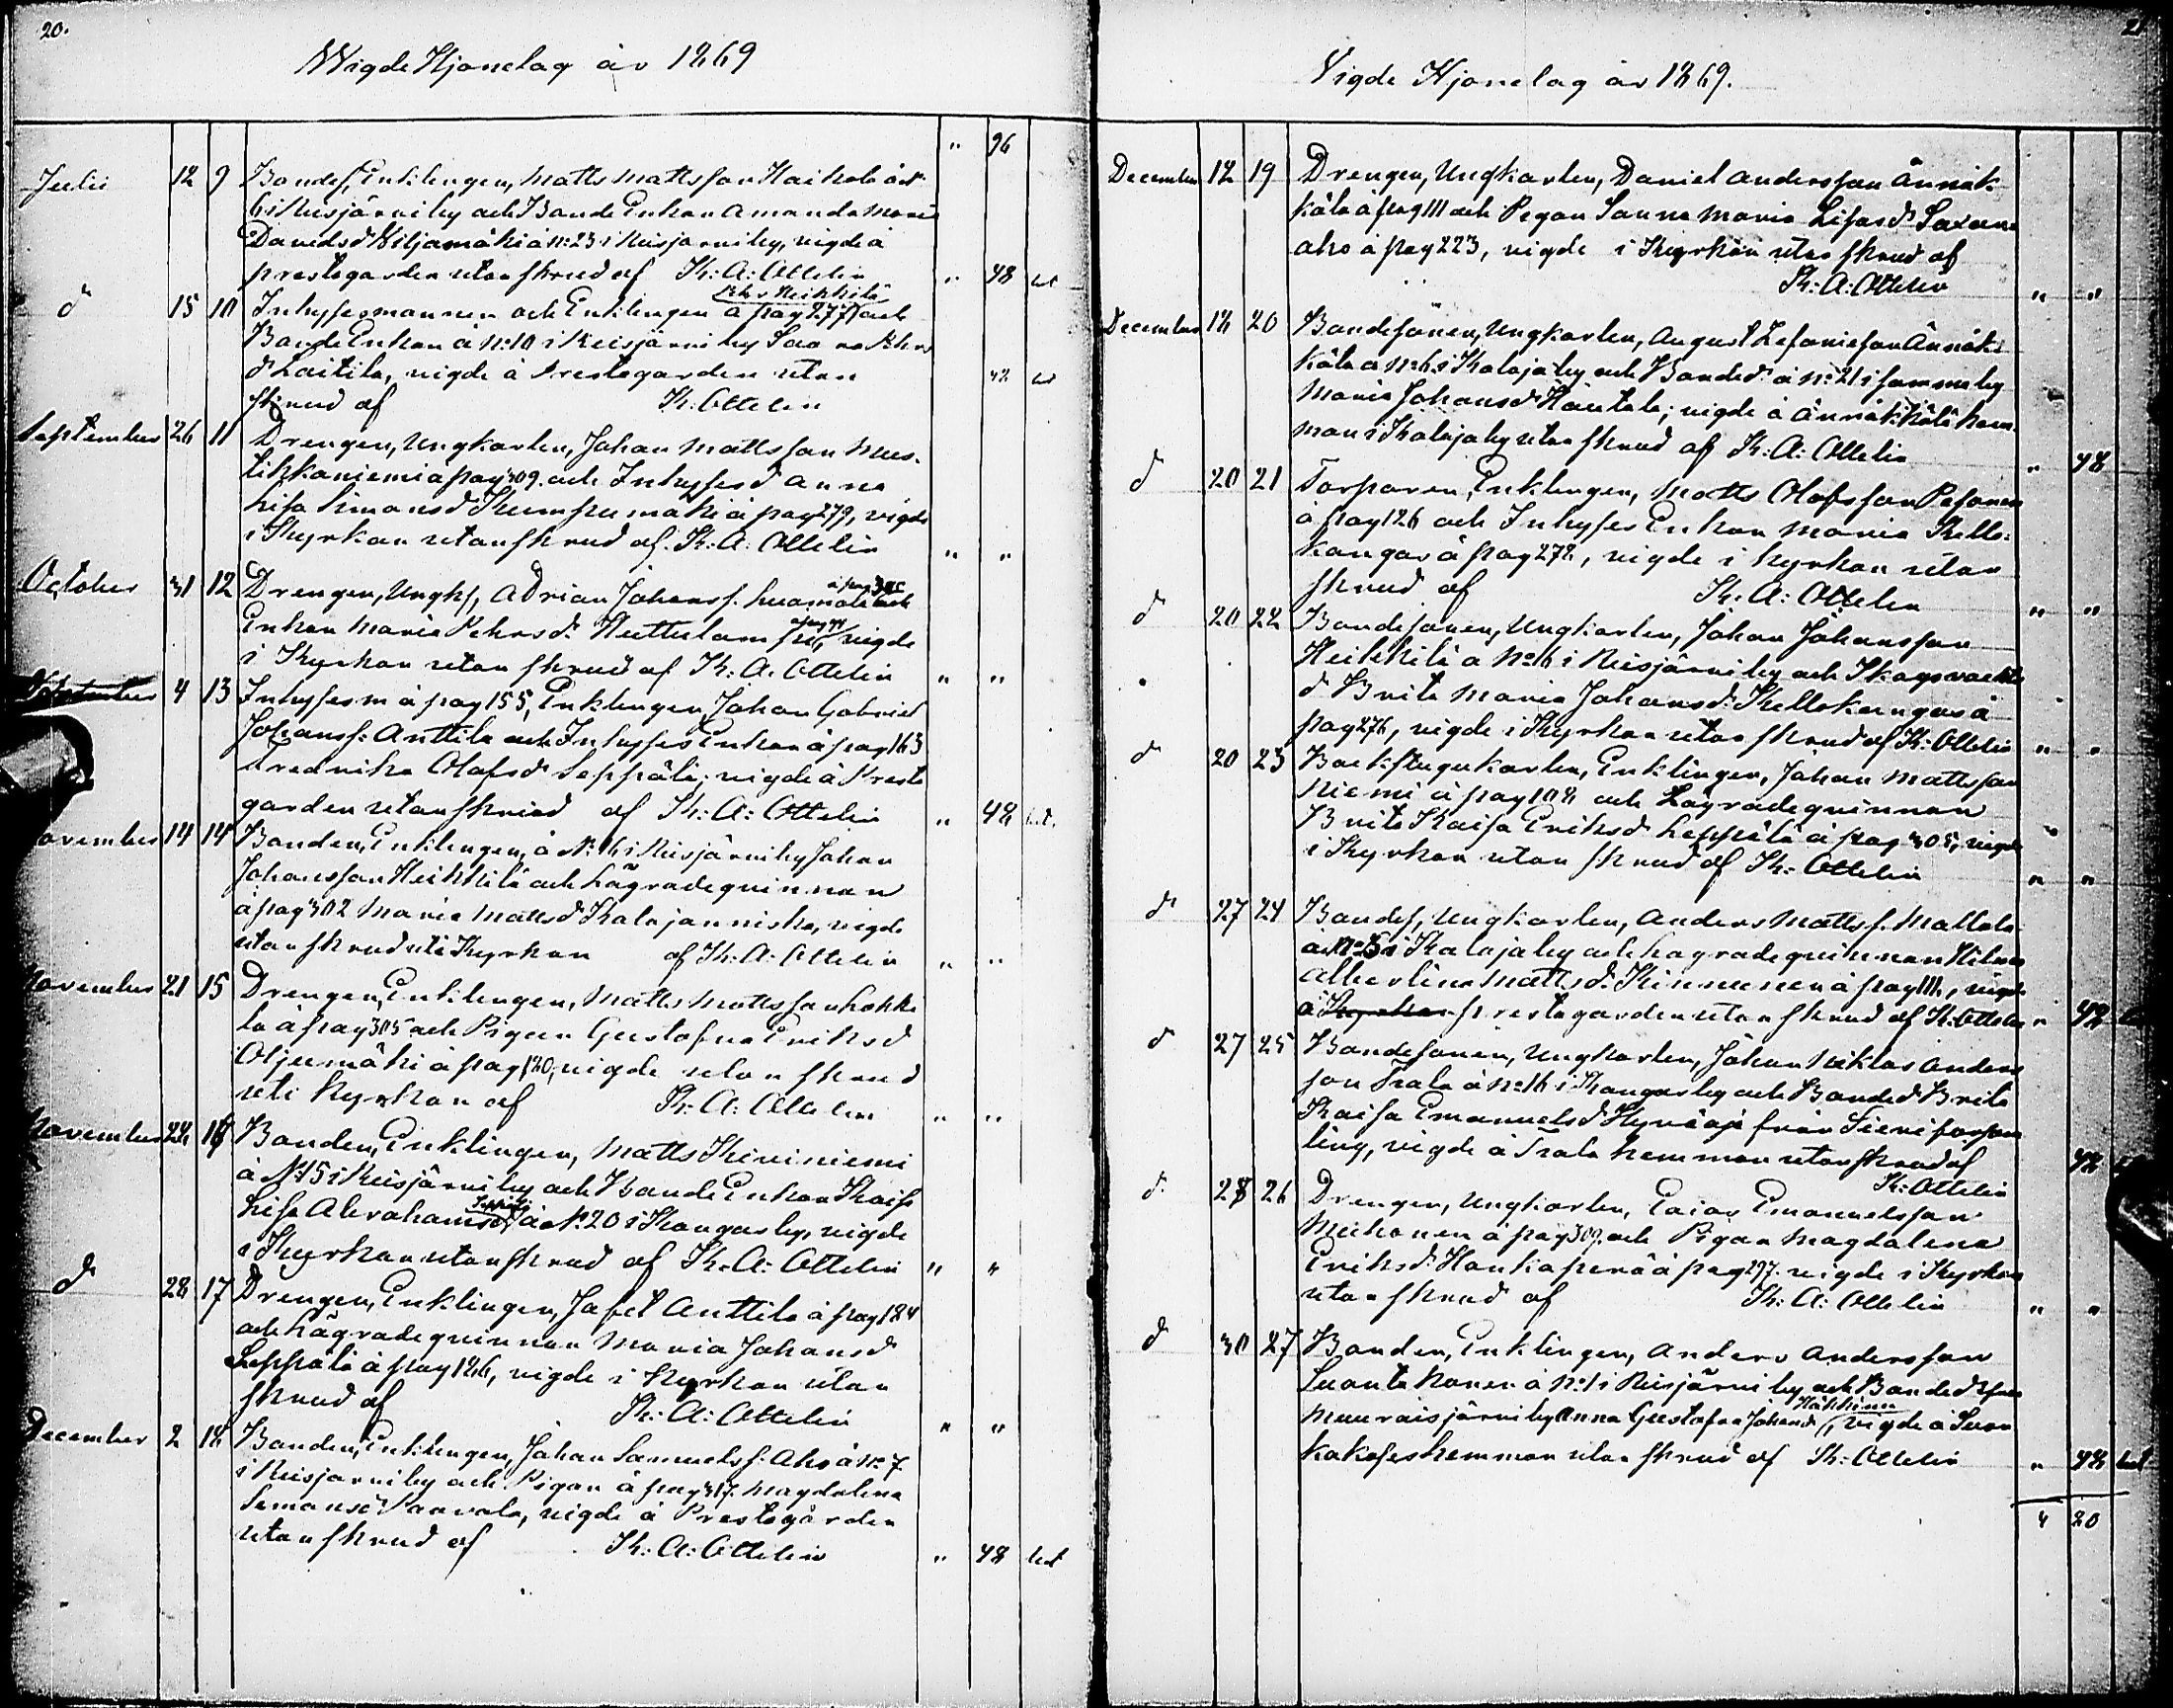 20.
Wigde Hjonelag år 1869
" 96
Julii 12 9 Bondes. Enklingen, Matts Mattsson Haikola å N:
6 i Reisjärvi by och Bonde Enkan Amanda Maria
Davidsd. Hiljamäki å N: 23 i Reisjärvi by, vigde å
prestegården utan skrud af K: A: Ottelin " 48
Pehr Heikkilä
d 15 10 Inhysesmannen och Enklingen å pag 277 och
Bonde Enkan å N: 10 i Reisjärvi by
d Laitila, vigde å Prestegården utan 48
skrud af K. Ottelin
September 26 11 Drengen, Ungkarlen, Johan Mattsson Mus-
tikkaniemi å pag 309. och Inhysesd Anna
Lisa Simonsd Kumpumäki å pag 279, vigde
i Kyrkan utan skrud af K: A: Ottelin " "
October 31 12 Drengen, Ungk, Adrian Johanss. och
Enkan Maria Pehrsd. Huttulampi, vigde
i Kyrkan utan skrud af K. A. Ottelin " "
4 13 Inhysesm å pag 155, Enklingen Johan Gabriel
Johanss: Anttila och Inhyses Enkan å pag 163
Fredrika Olofsd Seppälä; vigde å Preste
gården utan skrud af K: A: Ottelin " 48
November 14 14 Bonden, Enklingen, å N: 16 i Reisjärvi by Johan
Johansson Heikkilä och Lägradeqvinnan
å pag 302 Maria Mattsd Kalajanniska, vigde
utan skrud uti Kyrkan af K: A: Ottelin " "
November 21 15 Drengen, Enklingen, Matts Mattsson Lokki
la å pag 305 och Pigan Gustafva Eriksd
Oljumäki å pag 120, vigde utan skrud
uti Kyrkan af K: A: Ottelin " "
November 28 16 Bonden, Enklingen, Matts Kiviniemi
å N: 15 i Reisjärvi by och Bonde Enkan Kaisa
Lisa Abrahamsd Seppälä å N: 20 i Kangas by, vigde
i Kyrkan utan skrud af K. A: Ottelin " "
d 28 17 Drengen, Enklingen, Jafet Anttila å pag 184
och Lägradeqvinnan Maria Johansd
Seppälä å pag 126, vigde i Kyrkan utan
skrud af K: A: Ottelin " "
December 2 18 Bonden, Enklingen, Johan Samuelss: Aho å N: 7
i Reisjärvi by och Pigan å pag 317. Magdalena
Simonsd Paavola, vigde å Prestegården
utan skrud af K: A: Ottelin " 48
21
Vigde Hjonelag år 1869.
December 12 19 Drengen, Ungkarlen, Daniel Andersson Ännäk-
kälä å pag 111 och Pigan Sanna Maria Lisasd Saxan
aho å pag 223, vigde i Kyrkan utan skrud af
K: A: Ottelin " "
December 18 20 Bondesonen, Ungkarlen, August Zefaniesson Ännäk-
kälä å N: 6 i Kalaja by och Bonded. å N: 21 i samma by
Maria Johansd Hautala; vigde å Ännäkkälä hem-
man i Kalaja by utan skrud af K: A: Ottelin " 48
d 20 21 Torparen, Enklingen, Matts Olofsson Pesonen
å pag 126 och Inhyses Enkan Maria Kello-
kangas å pag 278, vigde i Kyrkan utan
skrud af K: A: Ottelin " "
d 20 22 Bondesonen, Ungkarlen, Johan Johansson
Heikkilä å N: 16 i Reisjärvi by och Skogsvakts
d Brita Maria Johansd: Kellokangas å
pag 276, vigde i Kyrkan utan skrud af K: Ottelin " "
d 20 23 Backstugukarlen, Enklingen, Johan Mattsson
Niemi å pag 108 och Lägradeqvinnan
Brita Kaisa Eriksd. Leppälä å pag 305, vigde
i Kyrkan utan skrud af K: Ottelin " "
d 27 24 Bondes, Ungkarlen, Anders Mattss. Mattola
å N: 5 i Kalaja by och Lägradeqvinnan Hilma
Albertina Mattsd. Kinnunen å pag 111, vigde
å Kyrkan prestegården utan skrud af K: Ottelin " 48
d 27 25 Bondesonen, Ungkarlen, Johan Niklas Anders
son Trala å N: 16 i Kangas by och Bonded Brita
Kaisa Emanuelsd Hyväoja från Sievi försam
ling, vigde å Trala hemman utan skrud af 48
K: Ottelin
d. 28 26 Drengen, Ungkarlen, Esaias Emanuelsson
Muhonen å pag 309. och Pigan Magdalena
Eriksd. Haukaperä å pag 297. vigde i Kyrkan
utan skrud af K: A: Ottelin " "
d 30 27 Bonden, Enklingen, Anders Andersson
Suontakanen å N: 1 i Reisjärvi by och Bonded från
Muuraisjärvi by Anna Gustafva Johansd Häkkinen, vigde å Suon
takases hemman utan skrud af K: Ottelin " 48
4 20